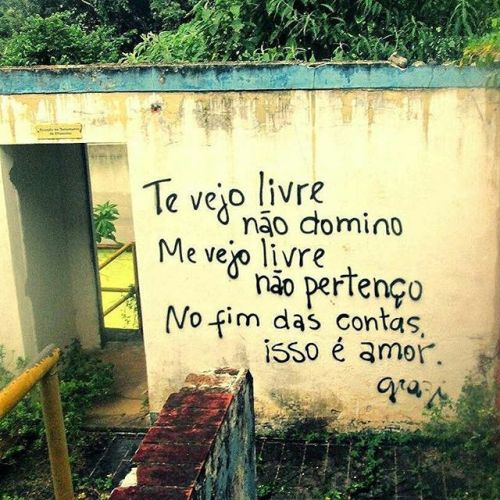 Te vejo livre
não domino
Me vejo livre
não pertenço
No fim das contas,
isso é amor.